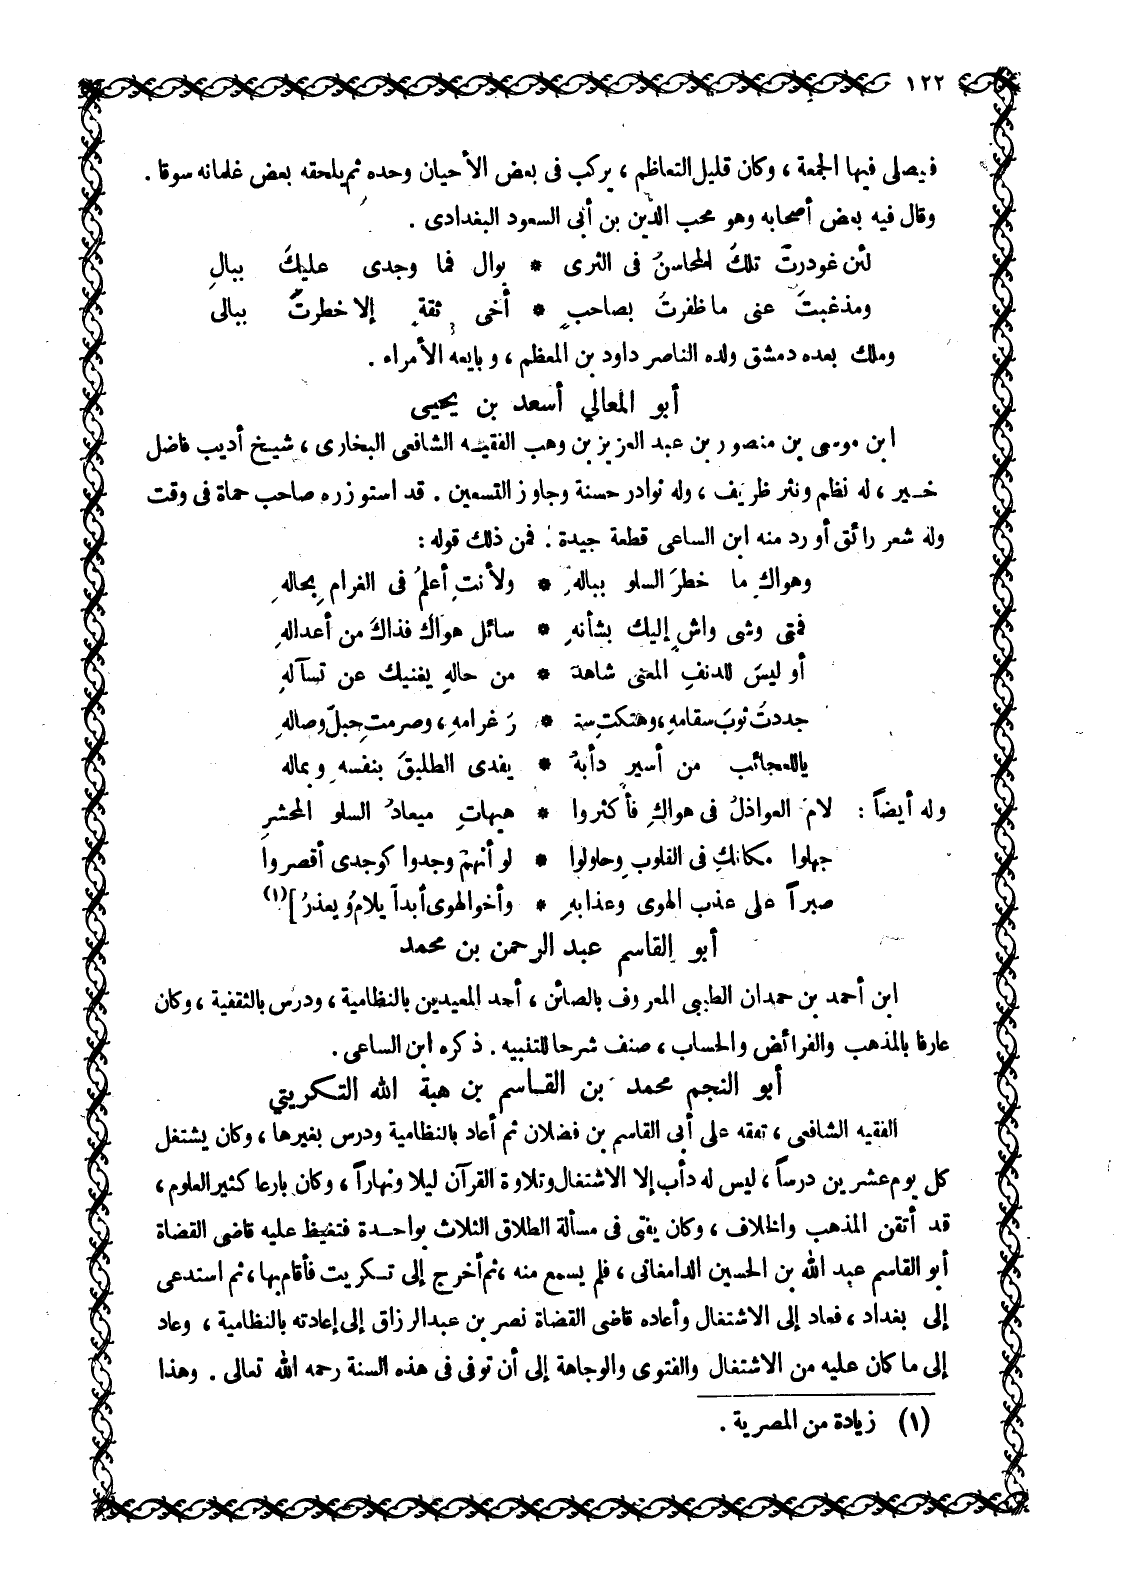 ١٢٢
فيصلى فيها الجمعة ، وكان قليل التعاظم ، يركب فى بعض الأحيان وحده ثم يلحقه بعض غلمانه سوقا .
وقال فيه بعض أصحابه وهو محب الدين بن أبى السعود البغدادى .
لئن غودرتْ تلكَ المحاسنُ فى الثرى * بوال فما وجدى عليكَ ببالِ
ومذغبتَ عنى ما ظفرتُ بصاحبٍ * أخى ثقةٍ إلا خطرتَ ببالى
وملك بعده دمشق ولده الناصر داود بن المعظم ، وبايعه الأمراء .
أبو المعالي أسعد بن يحيى
ابن موسى بن منصور بن عبد العزيز بن وهب الفقيه الشافعى البخارى ، شيخ أديب فاضل
خير ، له نظم ونثر ظريف ، وله نوادر حسنة وجاوز التسعين . قد استوزره صاحب حماة فى وقت
وله شعر رائق أورد منه ابن الساعى قطعة جيدة . فمن ذلك قوله :
وهواكِ ما خطرَ السلو ببالهِ * ولأنتِ أعلمُ فى الغرامِ بحالهِ
فمتى وشى واشٍ إليك بشأنهِ * سائل هواكَ فذاكَ من أعدالهِ
أو ليسَ للدنفِ المعنى شاهدَ * من حالهِ يغنيك عن تسآلهِ
جددتُ ثوبَ سقامهِ، وهتكتِ ستـ * ـرَ غرامهِ، وصرمتِ حبلَ وصالهِ
ياللعجائب من أسيرٍ دأبهُ * يفدى الطليقَ بنفسهِ وبماله
وله أيضاً : لامَ العواذلُ فى هواكِ فأكثروا * هيهاتِ ميعادُ السلو المحشرِ
جهلوا مكانكِ فى القلوبِ وحاولوا * لو أنهمْ وجدوا كوجدى أقصروا
صبراً على عذب الهوى وعذابهِ * وأخو الهوى أبداً يلامُ ويعذرُ ](١)
أبو القاسم عبد الرحمن بن محمد
ابن أحمد بن حمدان الطيبى المعروف بالصائن ، أحد المعيدين بالنظامية ، ودرس بالثقفية ، وكان
عارفا بالمذهب والفرائض والحساب ، صنف شرحا للتنبيه . ذكره ابن الساعى .
أبو النجم محمد بن القاسم بن هبة الله التكريتي
الفقيه الشافعى ، تفقه على أبى القاسم بن فضلان ثم أعاد بالنظامية ودرس بغيرها ، وكان يشتغل
كل يوم عشرين درساً ، ليس له دأب إلا الاشتغال وتلاوة القرآن ليلا ونهاراً ، وكان بارعا كثير العلوم ،
قد أتقن المذهب والخلاف ، وكان يفتى فى مسألة الطلاق الثلاث بواحدة فتغيظ عليه قاضى القضاة
أبو القاسم عبد الله بن الحسين الدامغانى ، فلم يسمع منه ، ثم أخرج إلى تكريت فأقام بها ، ثم استدعى
إلى بغداد ، فعاد إلى الاشتغال وأعاده قاضى القضاة نصر بن عبد الرزاق إلى إعادته بالنظامية ، وعاد
إلى ما كان عليه من الاشتغال والفتوى والوجاهة إلى أن توفى فى هذه السنة رحمه الله تعالى . وهذا
(١) زيادة من المصرية .